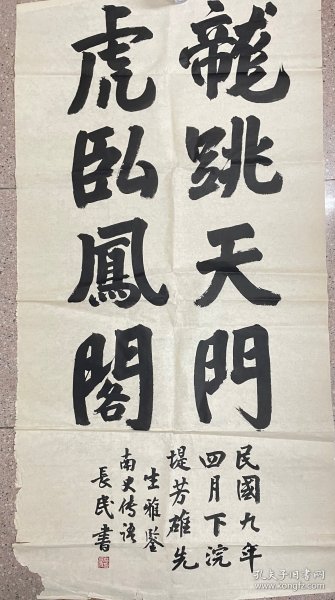 龍跳天門
虎臥鳳閣
民國九年
四月下浣
堤芳雄先
生雅鑒
南史传语
長民書
孔夫子旧书网